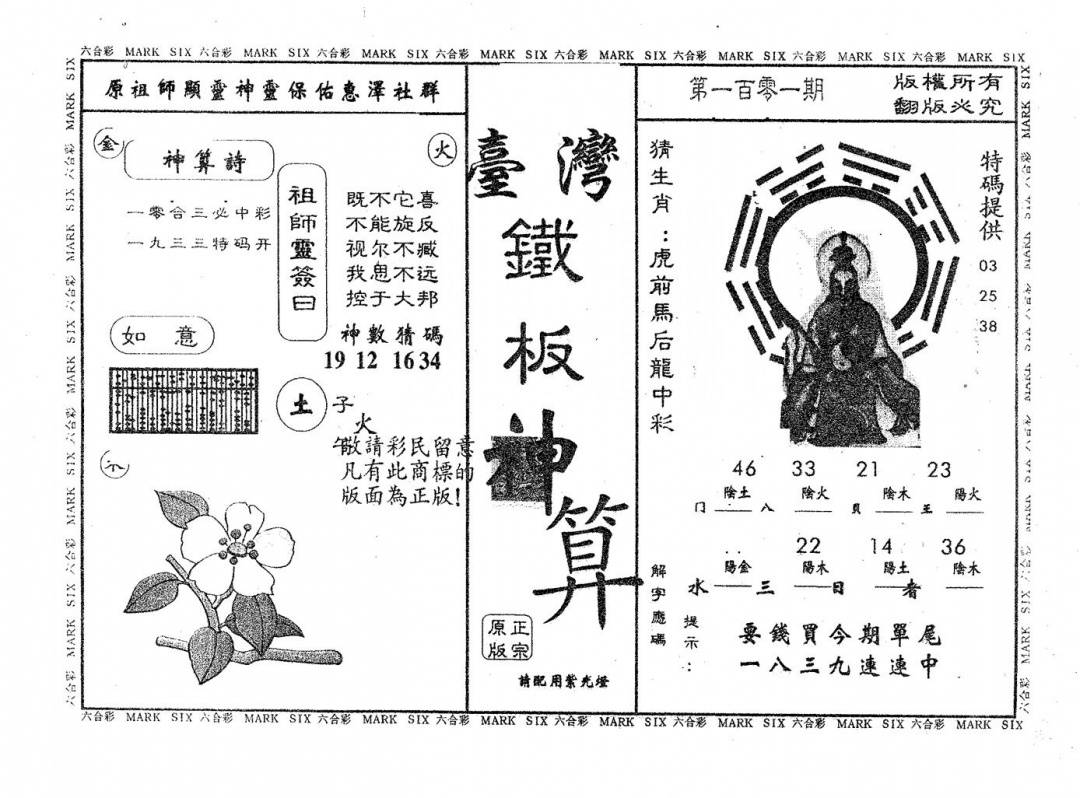 六合彩 MARK SIX 六合彩 MARK SIX 六合彩 MARK SIX 六合彩 MARK SIX 六合彩 MARK SIX 六合彩 MARK SIX 六合彩 MARK SIX 六合彩 MARK SIX
原祖師顯靈神靈保佑惠澤社群
金
火
神算詩
一零合三必中彩
一九三三特码开
祖師靈簽曰
既不它喜
不能旋反
视尔不臧
我思不远
控于大邦
神數猜碼
19 12 16 34
如意
土
子
火
午
敬請彩民留意
凡有此商標的
版面為正版!
臺灣
鐵
板
神
算
正宗
原版
請配用紫光燈
第一百零一期
版權所有
翻版必究
猜生肖:虎前馬后龍中彩
特碼提供
03
25
38
46 33 21 23
陰土 陰火 陰木 陽火
门 八 貝 王
22 14 36
陽金 陽木 陽土 陰木
水 三 日 者
解字應碼
提示:
要錢買今期單尾
一八三九連連中
六合彩 MARK SIX 六合彩 MARK SIX 六合彩 MARK SIX 六合彩 MARK SIX 六合彩 MARK SIX 六合彩 MARK SIX 六合彩 MARK SIX 六合彩 MARK SIX